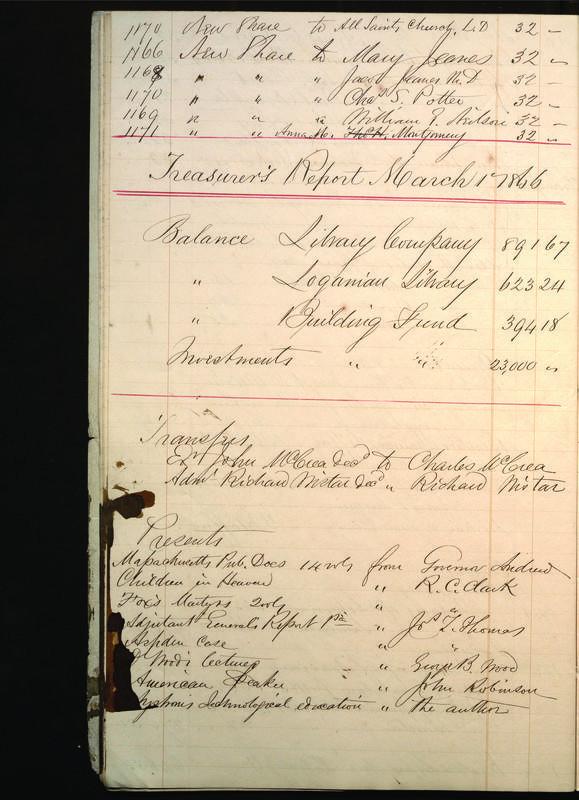 1170 New Share to All Saints Church, L.D 32 —
1166 New Share to Mary Jeanes 32 „
1168 „ „ „ Jacob Jeanes M.D. 32 —
1170 „ „ „ Chas S. Potter 32 —
1169 „ „ „ William F. 32 —
1171 „ „ Anna M. Montgomery 32 „
Treasurer's Report March 1 1866
Balance Library Company 891 67
„ Loganian Library 623 24
„ Building Fund 394 18
Investments „ „ 23,000 „
Transfers
Exrs John McCrea decd to Charles McCrea
Admr Richard Wistar decd „ Richard Wistar
Presents
Massachusetts Pub. Docs 14 vols from Governor Andrew
Children in Heaven „ R. C. Clark
Fox's Martyrs 2 vols „ „
Adjutant Generals Report „ Jos T. Thomas
Aspden Case „ „
Wood's lectures „ George B. Wood
American Speaker „ John Robinson
Technological education „ the author